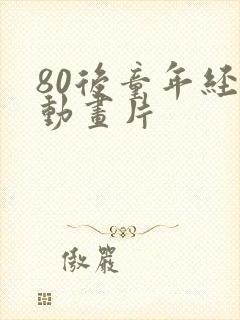 80後童年経
動畫片
傲嚴